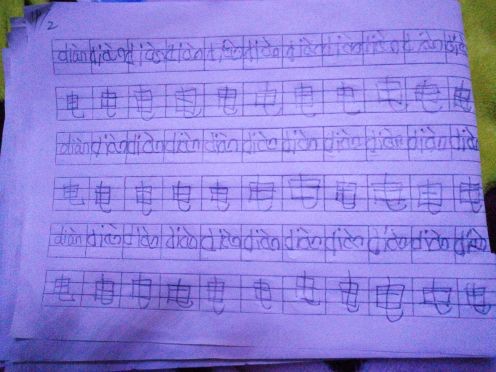 2
diàn diàn diàn diàn diàn diàn diàn diàn diàn diàn diàn
电 电 电 电 电 电 电 电 电 电 电
diàn diàn diàn diàn diàn diàn diàn diàn diàn diàn diàn
电 电 电 电 电 电 电 电 电 电 电
diàn diàn diàn diàn diàn diàn diàn diàn diàn diàn diàn
电 电 电 电 电 电 电 电 电 电 电